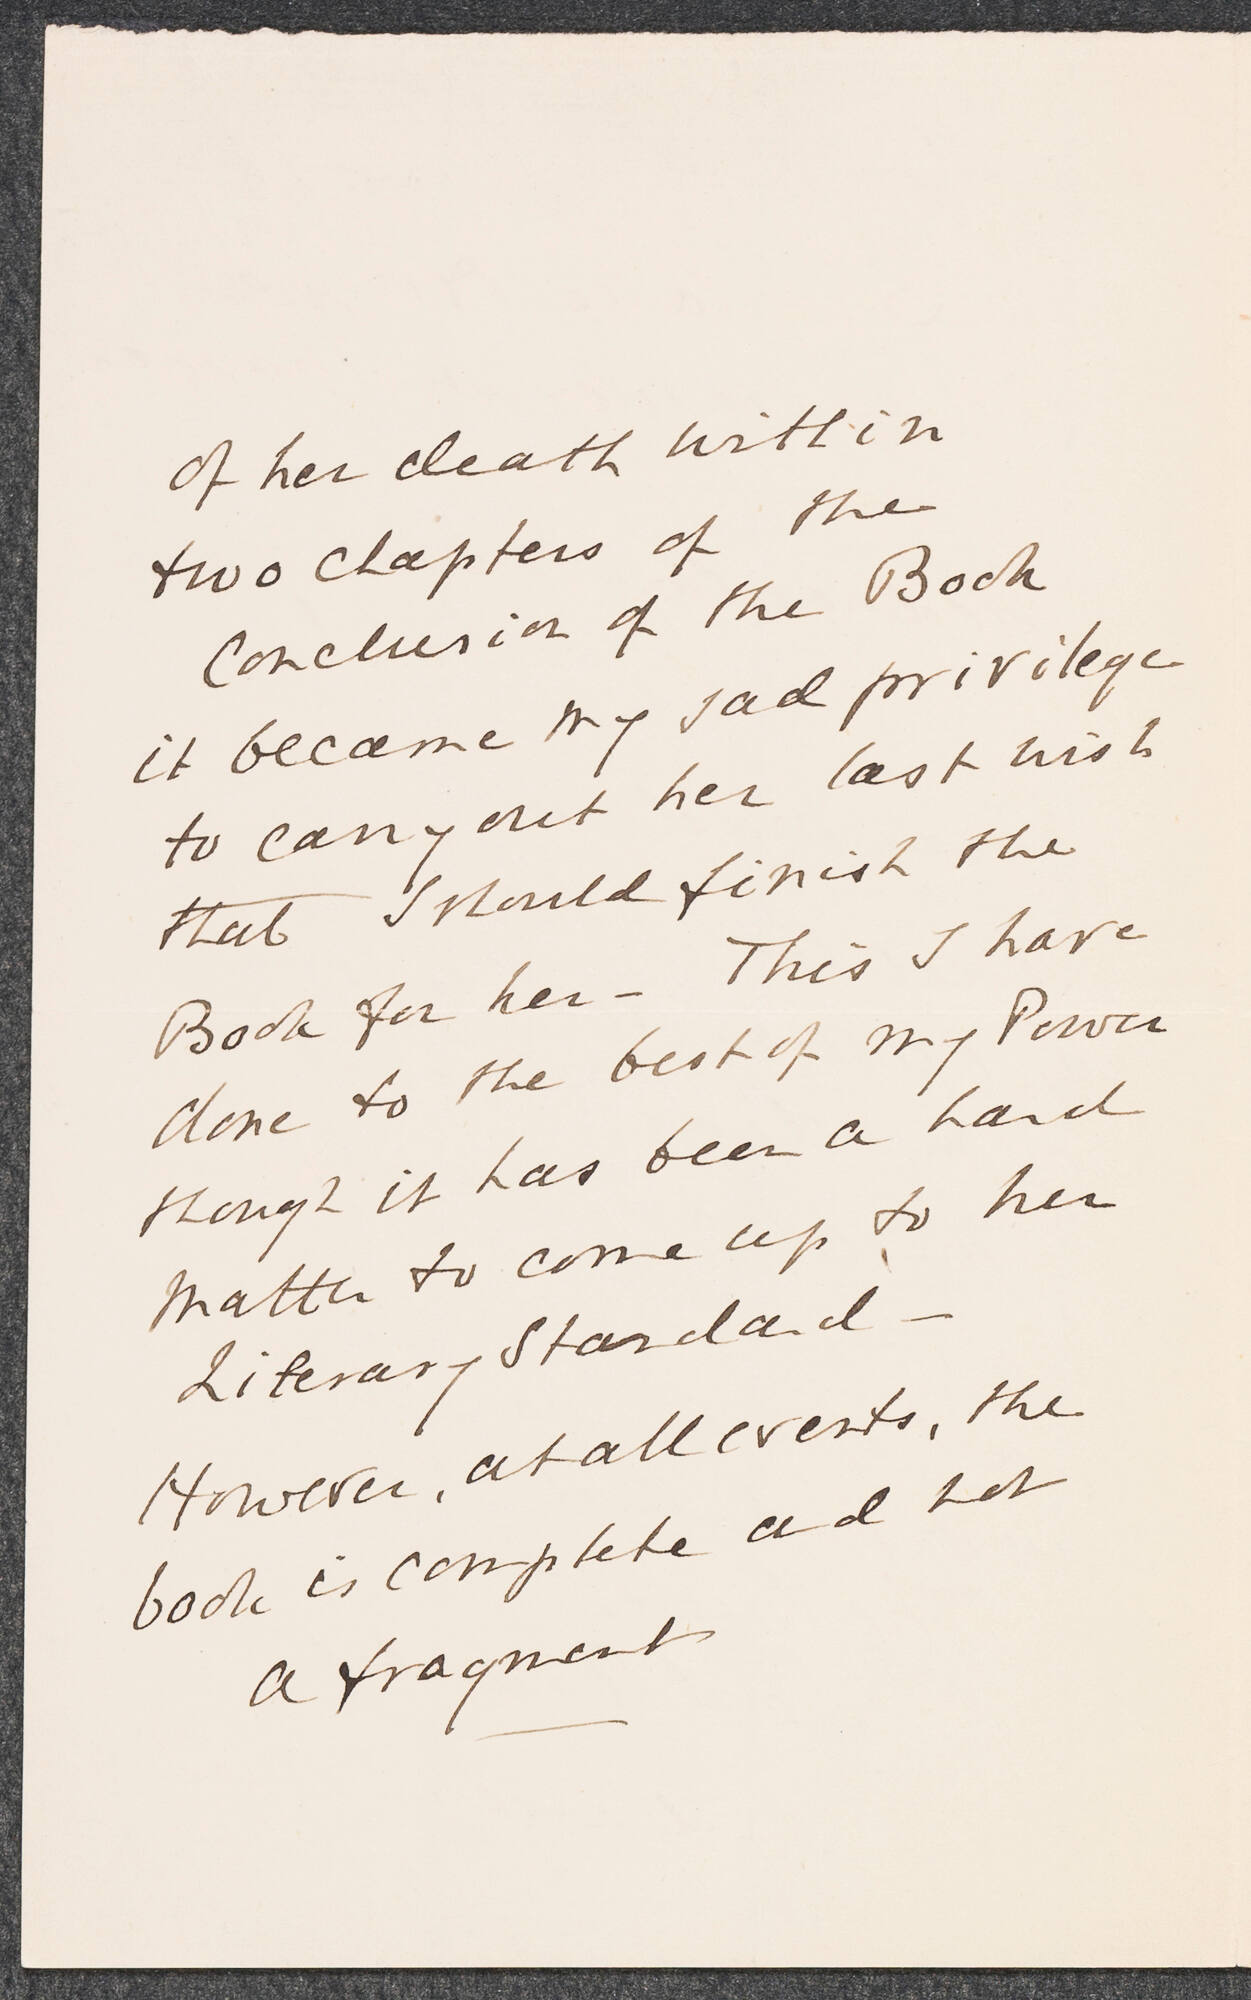 of her death within
two chapters of the
Conclusion of the Book
it became my sad privilege
to carry out her last wish
that I should finish the
Book for her - This I have
done to the best of my Power
though it has been a hard
matter to come up to her
Literary Standard -
However, at all events, the
book is complete and not
a fragment